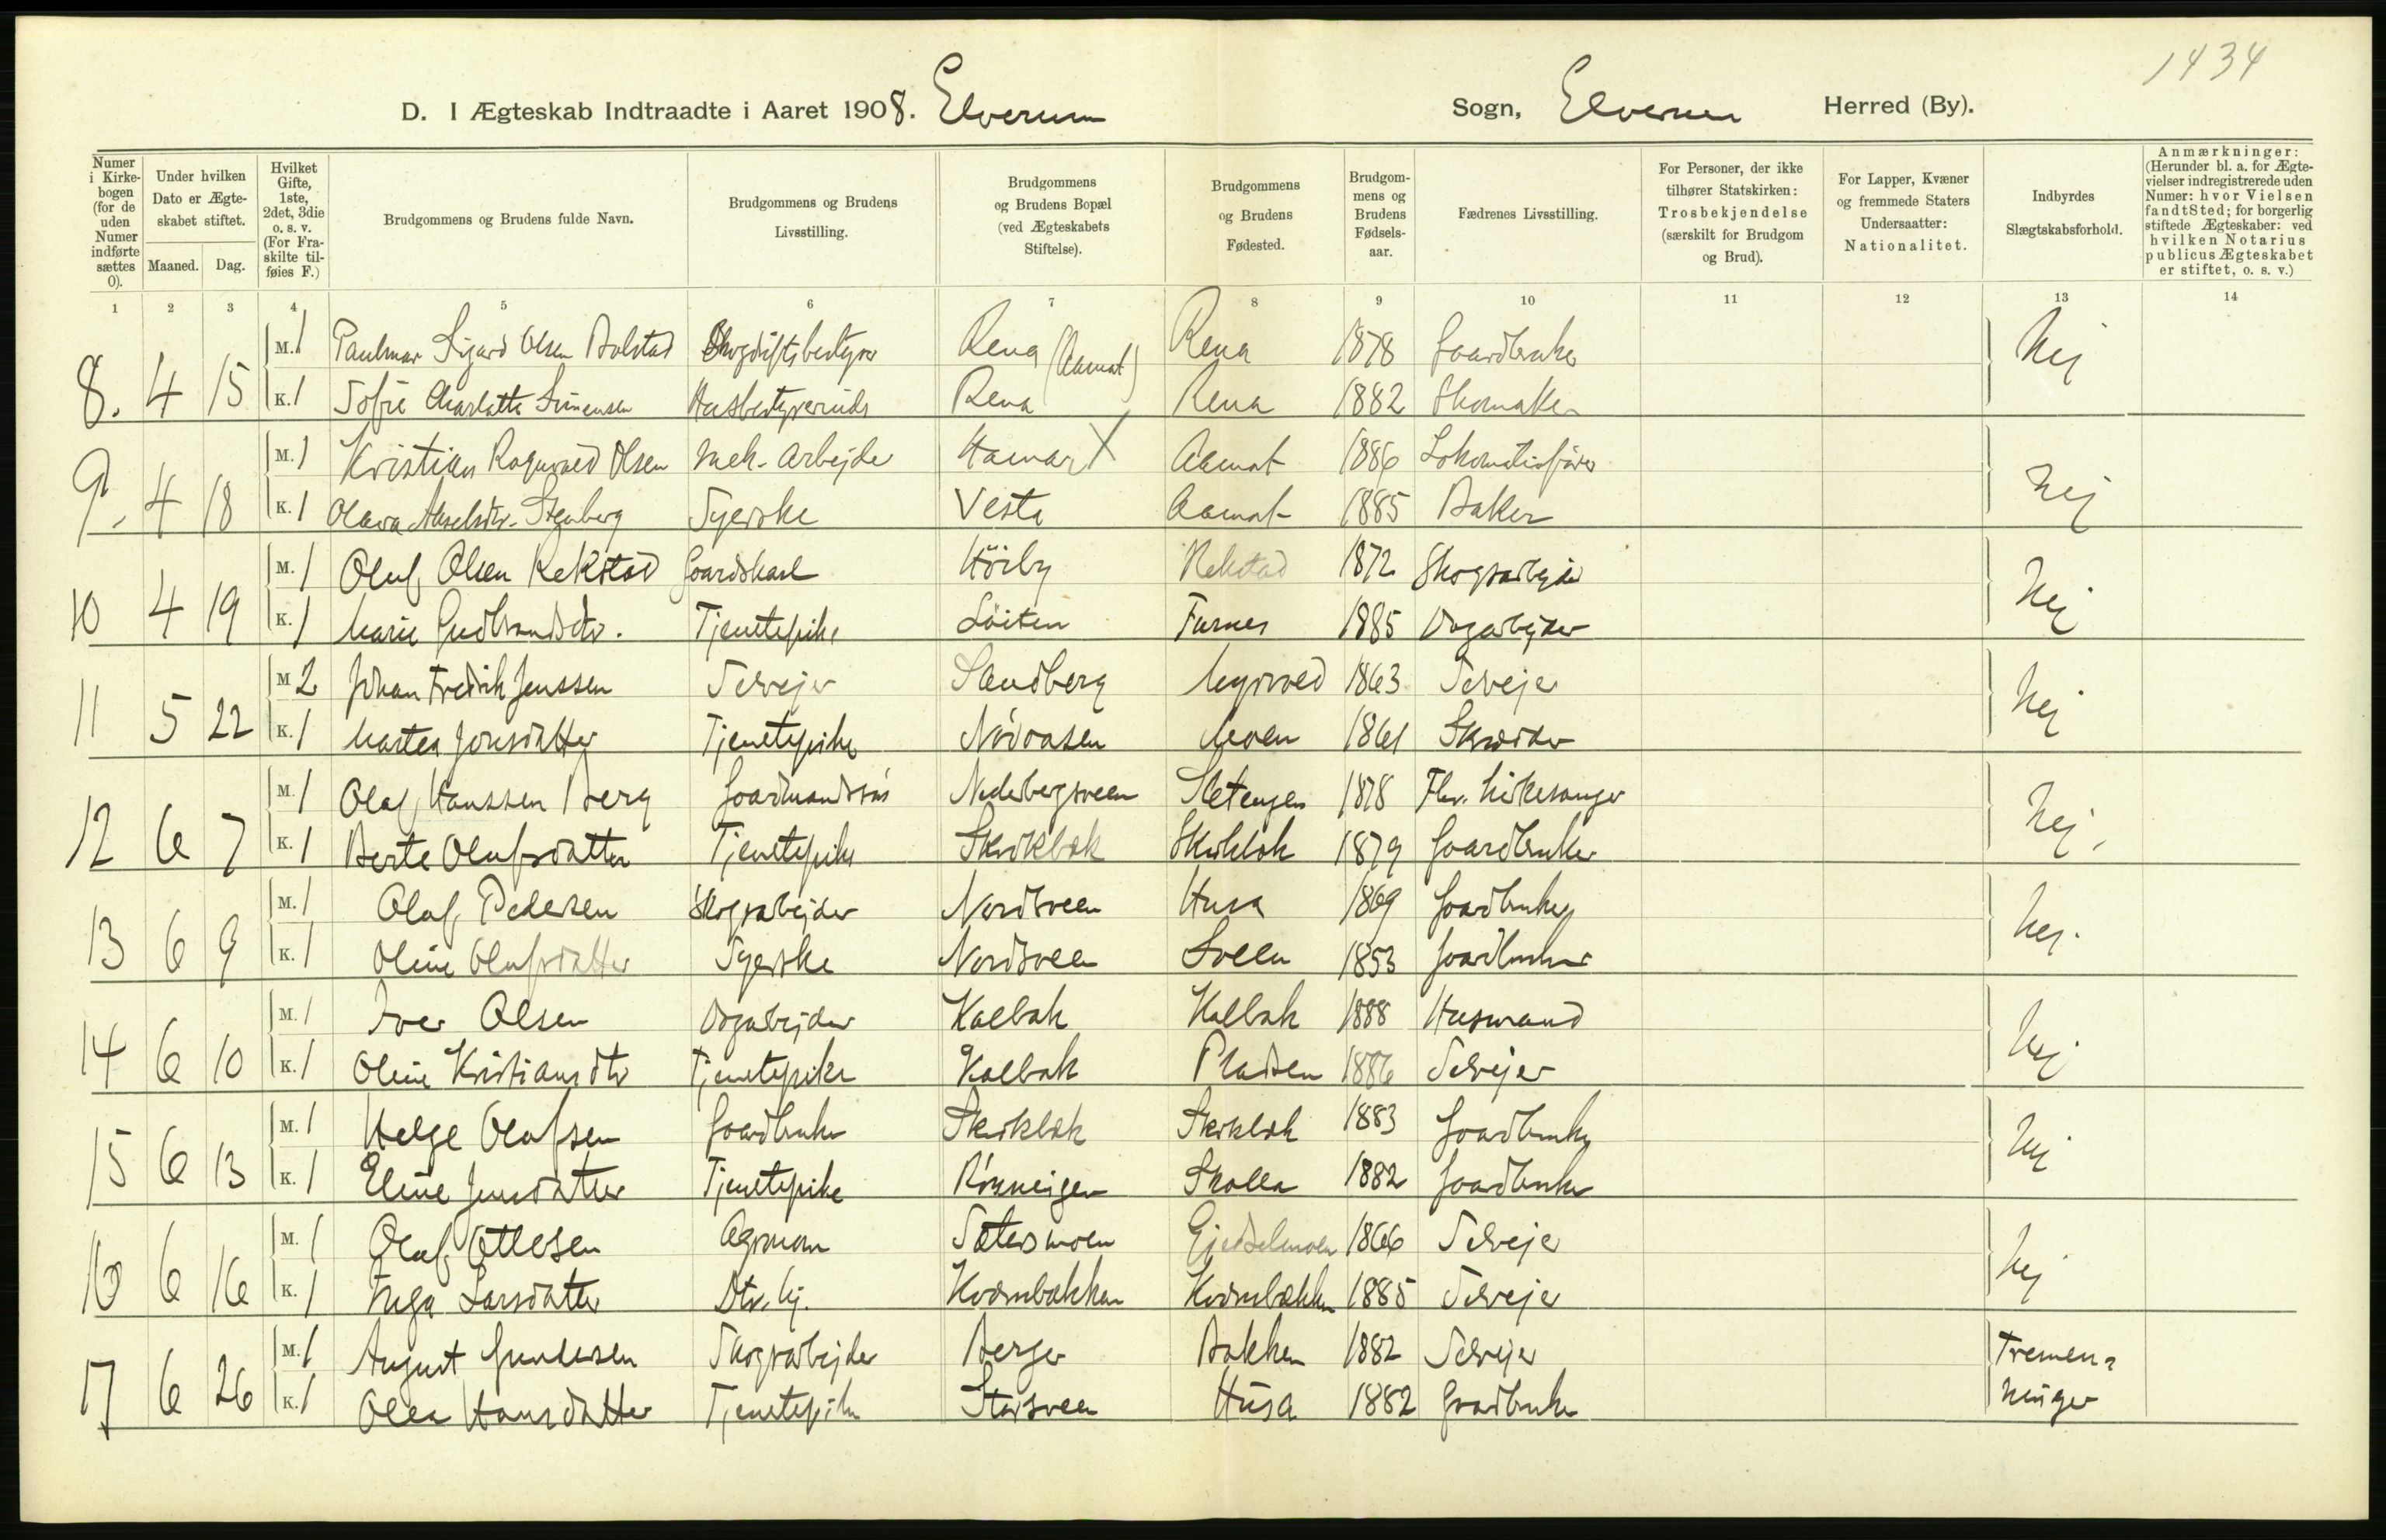 1434
D. I Ægteskab Indtraadte i Aaret 1908. Elverum Sogn, Elverum Herred (By).
Numer i Kirkebogen (for de uden Numer indførte sættes 0).
Under hvilken Dato er Ægteskabet stiftet.
Maaned. Dag.
Hvilket Gifte, 1ste, 2det, 3die o. s. v. (For Fraskilte tilføies F.)
Brudgommens og Brudens fulde Navn.
Brudgommens og Brudens Livsstilling.
Brudgommens og Brudens Bopæl (ved Ægteskabets Stiftelse).
Brudgommens og Brudens Fødested.
Brudgommens og Brudens Fødselsaar.
Fædrenes Livsstilling.
For Personer, der ikke tilhører Statskirken: Trosbekjendelse (særskilt for Brudgom og Brud).
For Lapper, Kvæner og fremmede Staters Undersaatter: Nationalitet.
Indbyrdes Slægtskabsforhold.
Anmærkninger: (Herunder bl. a. for Ægtevielser indregistrerede uden Numer: hvor Vielsen fandt Sted; for borgerlig stiftede Ægteskaber: ved hvilken Notarius publicus Ægteskabet er stiftet, o. s. v.)
1 2 3 4 5 6 7 8 9 10 11 12 13 14
8. 4 15 M. 1 Sigurd Olsen Bolstad Skogdriftsbestyrer Rena (Aamot) Rena 1878 Gaardbruker Nej
K. 1 Sofie Charlotte Simensen Husbestyrerinde Rena Rena 1882 Skomaker
9. 4 18 M. 1 Kristian Ragnvald Olsen Mek. Arbejder Hamar X Aamot 1886 Lokomotivfører Nej
K. 1 Olava Akselsdtr. Stenberg Syerske Vestad Aamot 1885 Baker
10 4 19 M. 1 Oluf Olsen Rekstad Gaardskarl Hörby Rekstad 1872 Skogsarbejder Nej
K. 1 Marie Gudbrandsdtr. Tjenestepike Löiten Furnes 1885 Dagarbejder
11 5 22 M 2 Johan Fredrik Jenssen Selvejer Sandberg Myrvold 1863 Selvejer Nej
K. 1 Martea Jonsdatter Tjenestepike Nordaasen Moen 1861 Skrædder
12 6 7 M. 1 Olaf Hanssen Berg Gaardmandssøn Nederbergsveen Sletengen 1878 Fhv. Kirkesanger Nej.
K. 1 Berte Olufsdatter Tjenestepike Skrikbæk Skrikbæk 1879 Gaardbruker
13 6 9 M. 1 Olaf Pedersen Skogsarbejder Nordsveen Husa 1869 Gaardbruker Nej.
K. 1 Oline Olufsdatter Syerske Nordsveen Sveen 1853 Gaardbruker
14 6 10 M. 1 Iver Olsen Dagarbejder Kalbæk Kalbæk 1888 Husmand Nej
K. 1 Oline Kristiansdtr Tjenestepike Kalbæk Pladsen 1886 Selvejer
15 6 13 M. 1 Helge Olafsen Gaardbruker Skrikbæk Skrikbæk 1883 Gaardbruker Nej
K. 1 Eline Jensdatter Tjenestepike Skolla 1882 Gaardbruker
16 6 16 M. 1 Olaf Ottesen Agronom Sætersmoen Gjedselmoen 1866 Selvejer Nej
K. 1 Inga Larsdatter Dtr. hj. Kværnbækken Kværnbækken 1885 Selvejer
17 6 26 M. 1 August Gundersen Skogsarbejder Berger Bakken 1882 Selvejer Tremen-
K. 1 Olea Hansdatter Tjenestepike Storsveen Husa 1882 Gaardbruker ninger